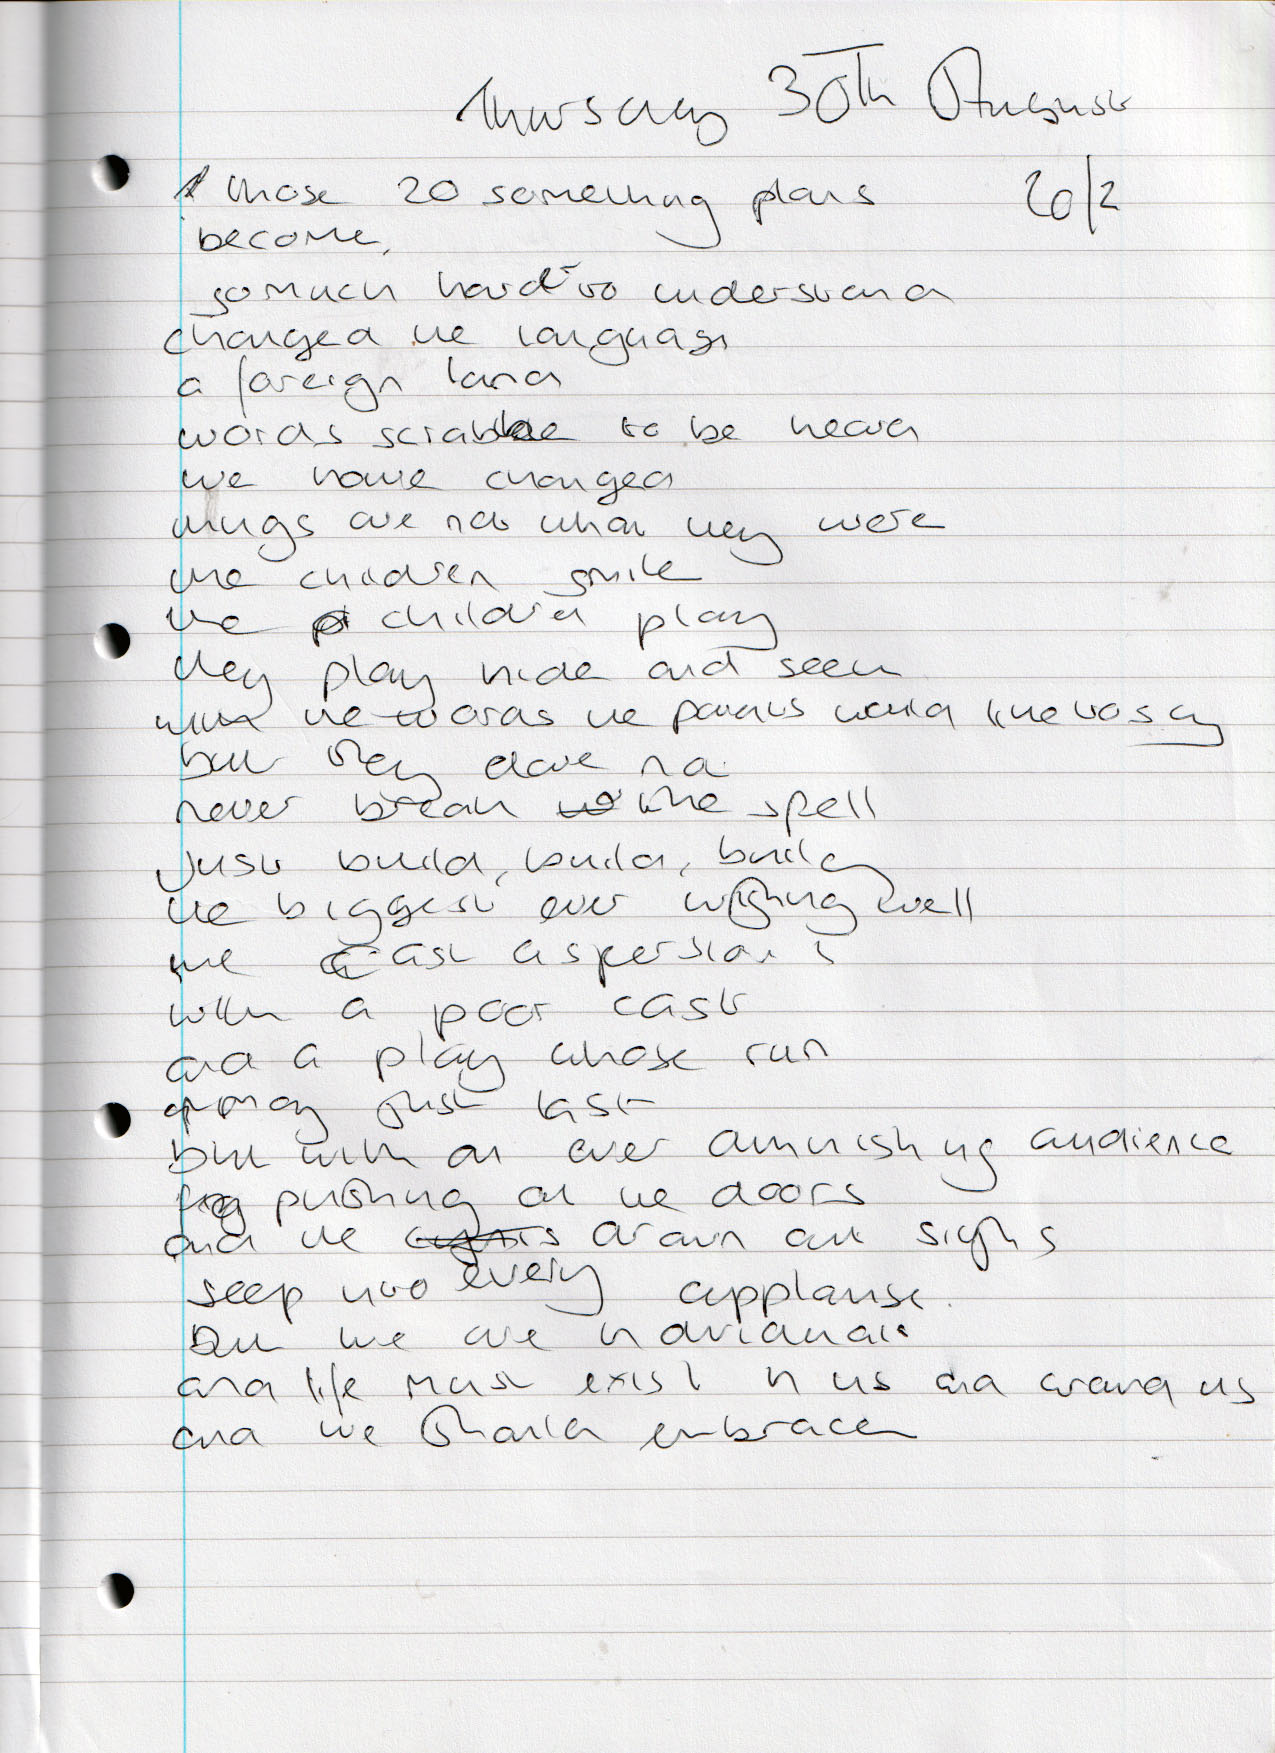 Thursday 30th August
20/2
those 20 something plans
become,
so much hard to understand
changed the language
a foreign land
words scrabble to be heard
we have changed
things are not what they were
the children smile
the children play
they play hide and seek
with the words the parents would like to say
but they dare not
never break the spell
just build, build, build
the biggest ever wishing well
we cast aspersions
with a poor cast
and a play whose run
may just last
but with an ever diminishing audience
pushing at the doors
and the drawn out sighs
seep into every applause.
but we are individuals
and life must exist in us and around us
and we should embrace